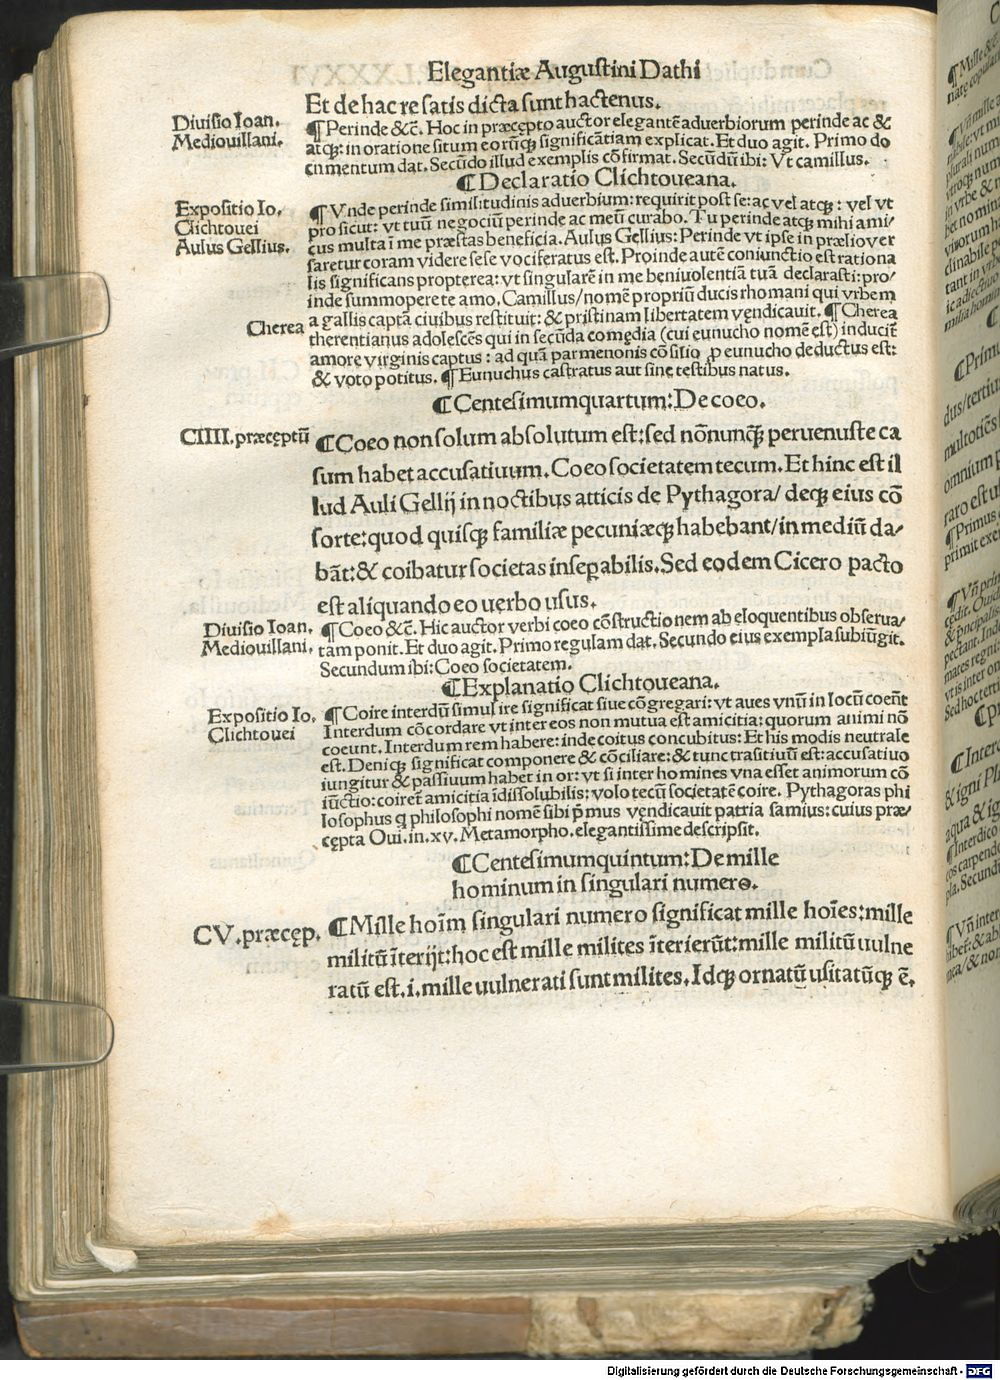 Elegantiæ Augustini Dathi
Et de hac re satis dicta sunt hactenus.
Diuisio Ioan.
Mediouillani.
¶Perinde &c̄. Hoc in præcepto auctor elegantē aduerbiorum perinde ac &
atqꝫ: in oratione situm eorūqꝫ significātiam explicat. Et duo agit. Primo do
cumentum dat. Secūdo illud exemplis cōfirmat. Secūdū ibi: Vt camillus.
¶Declaratio Clichtoueana.
Expositio Io.
Clichtouei
Aulus Gellius.
¶Vnde perinde similitudinis aduerbium: requirit post se: ac vel atqꝫ: vel vt
pro sicut: vt tuū negociū perinde ac meū curabo. Tu perinde atqꝫ mihi ami/
cus multa ī me præstas beneficia. Aulus Gellius: Perinde vt ipse in prælio ver
saretur coram videre sese vociferatus est. Proinde autē coniunctio est rationa
lis significans propterea: vt singularē in me beniuolentiā tuā declarasti: pro/
inde summopere te amo. Camillus/ nomē propriū ducis rhomani qui vrbem
a gallis captā ciuibus restituit: & pristinam libertatem vendicauit. ¶Cherea
Cherea
therentianus adolescēs qui in secūda comędia (cui eunucho nomē est) inducit̄
amore virginis captus: ad quā parmenonis cōsilio ꝓ eunucho deductus est:
& voto potitus. ¶Eunuchus castratus aut sine testibus natus.
¶Centesimumquartum: De coeo.
CIIII. præceptū
¶Coeo non solum absolutum est: sed nōnunqꝫ peruenuste ca
sum habet accusatiuum. Coeo societatem tecum. Et hinc est il
lud Auli Gellij in noctibus atticis de Pythagora/ deqꝫ eius cō
sorte: quod quisqꝫ familiæ pecuniæqꝫ habebant/ in mediū da/
bāt: & coibatur societas insepabilis. Sed eodem Cicero pacto
est aliquando eo uerbo usus.
Diuisio Ioan.
Mediouillani.
¶Coeo &c̄. Hic auctor verbi coeo cōstructionem ab eloquentibus obserua/
tam ponit. Et duo agit. Primo regulam dat. Secundo eius exempla subiūgit.
Secundum ibi: Coeo societatem.
¶Explanatio Clichtoueana.
Expositio Io.
Clichtouei
¶Coire interdū simul ire significat siue cōgregari: vt aues vnū in locū coēnt
Interdum cōcordare vt inter eos non mutua est amicitia: quorum animi nō
coeunt. Interdum rem habere: inde coitus concubitus: Et his modis neutrale
est. Deniqꝫ significat componere & cōciliare: & tunc trāsitiuū est: accusatiuo
iungitur & passiuum habet in or: vt si inter homines vna esset animorum cō
iūctio: coiret amicitia īdissolubilis: volo tecū societatē coire. Pythagoras phi
losophus q philosophi nomē sibi p̄mus vendicauit patria samius: cuius præ/
cępta Oui. in. xv. Metamorpho. elegantissime descripsit.
¶Centesimumquintum: De mille
hominum in singulari numero.
CV. præcęp.
¶Mille hoīm singulari numero significat mille hoīes: mille
militū īterijt: hoc est mille milites īterierūt: mille militū uulne
ratū est. i. mille uulnerati sunt milites. Idqꝫ ornatū usitatūqꝫ ē.
Digitalisierung gefördert durch die Deutsche Forschungsgemeinschaft - DFG